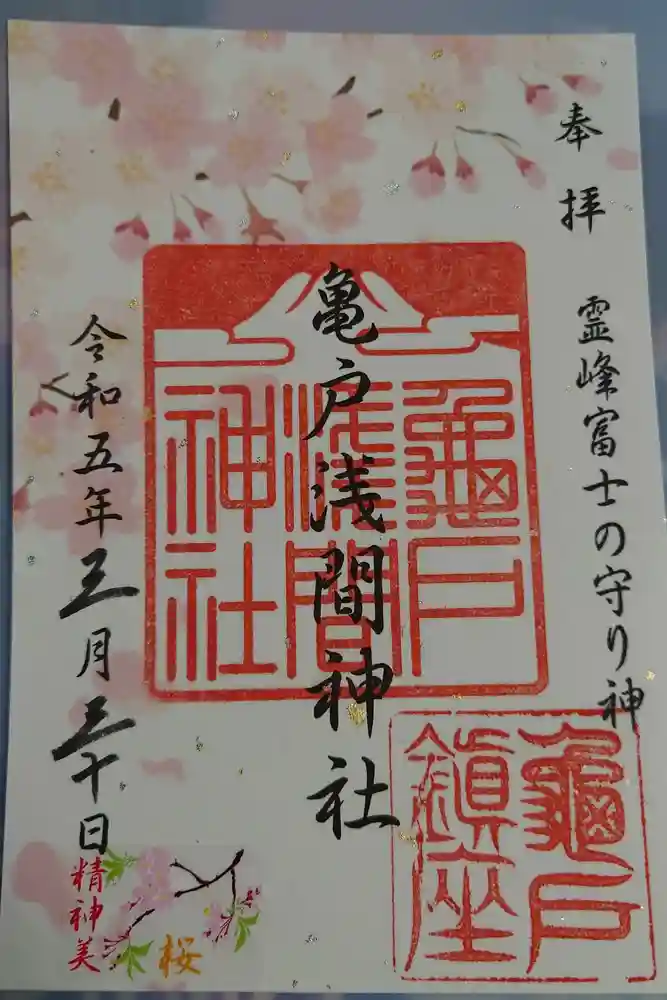 奉拝　霊峰富士の守り神
亀戸浅間神社
龜戸
淺間
神社
龜戸
鎮座
令和五年三月三十日
精神美
桜